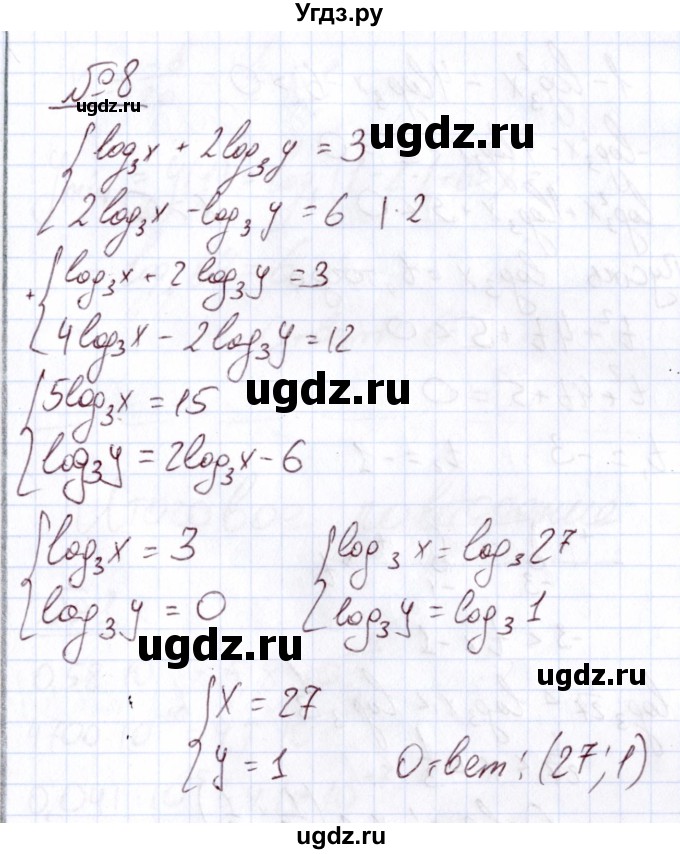 Угдз.ру
№8
ugdz.ru
{ log₃x + 2log₃y = 3
ugdz.ru
{ 2log₃x - log₃y = 6 |·2
+ { log₃x + 2log₃y = 3
{ 4log₃x - 2log₃y = 12
{ 5log₃x = 15
ugdz.ru
{ log₃y = 2log₃x - 6
{ log₃x = 3
{ log₃y = 0
{ log₃x = log₃27
{ log₃y = log₃1
ugdz.ru
ugdz.ru
{ x = 27
{ y = 1 Ответ: (27; 1)
ugdz.ru